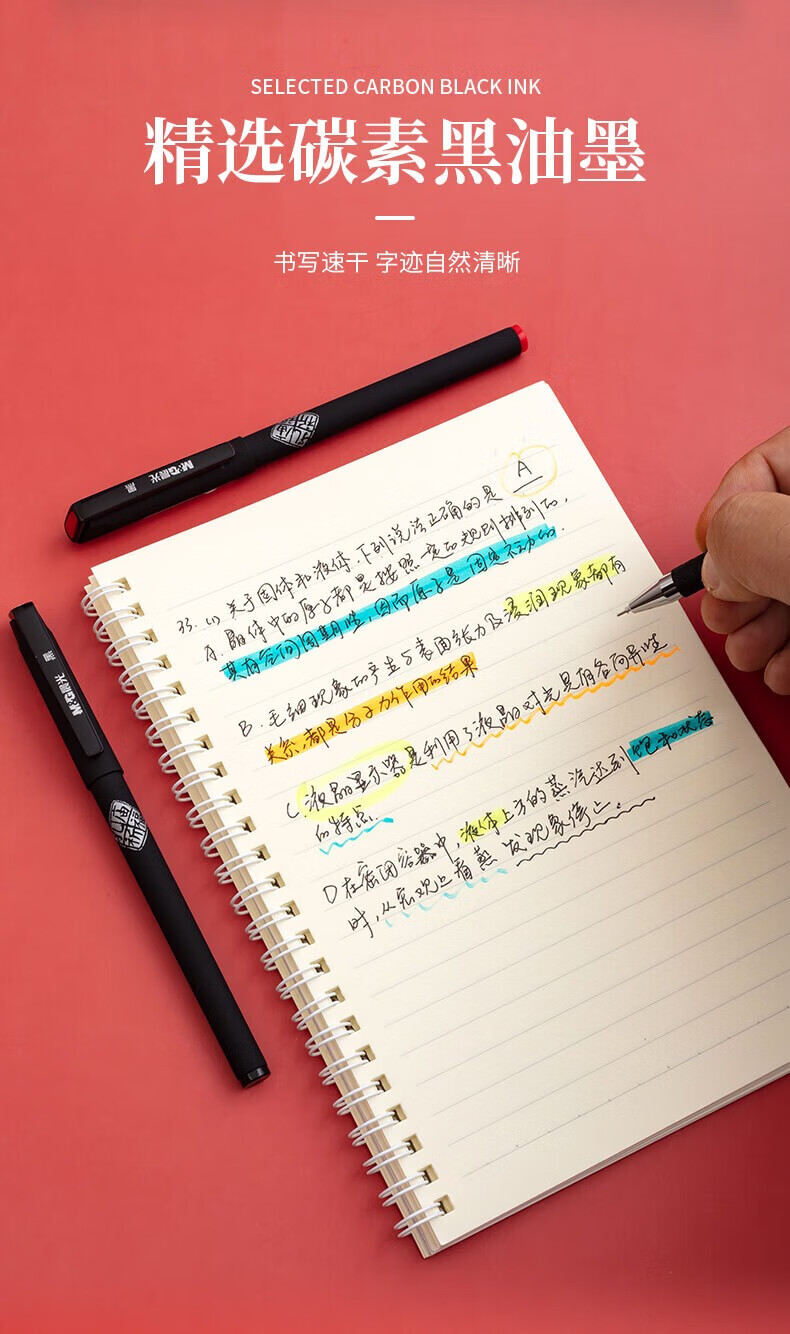 SELECTED CARBON BLACK INK
精选碳素黑油墨
书写速干 字迹自然清晰
M&G晨光 黑
M&G晨光 黑
A
33.(1) 关于固体和液体,下列说法正确的是
A.晶体中的原子都是按照一定的规则排列的,
其有空间周期性,因而原子是固定不动的.
B.毛细现象的产生与表面张力及浸润现象都有
关系,都是分子力作用的结果
C.液晶显示器是利用了液晶对光具有各向异性
的特点.
D在密闭容器中,液体上方的蒸汽达到饱和状态
时,从宏观上看蒸发现象停止。